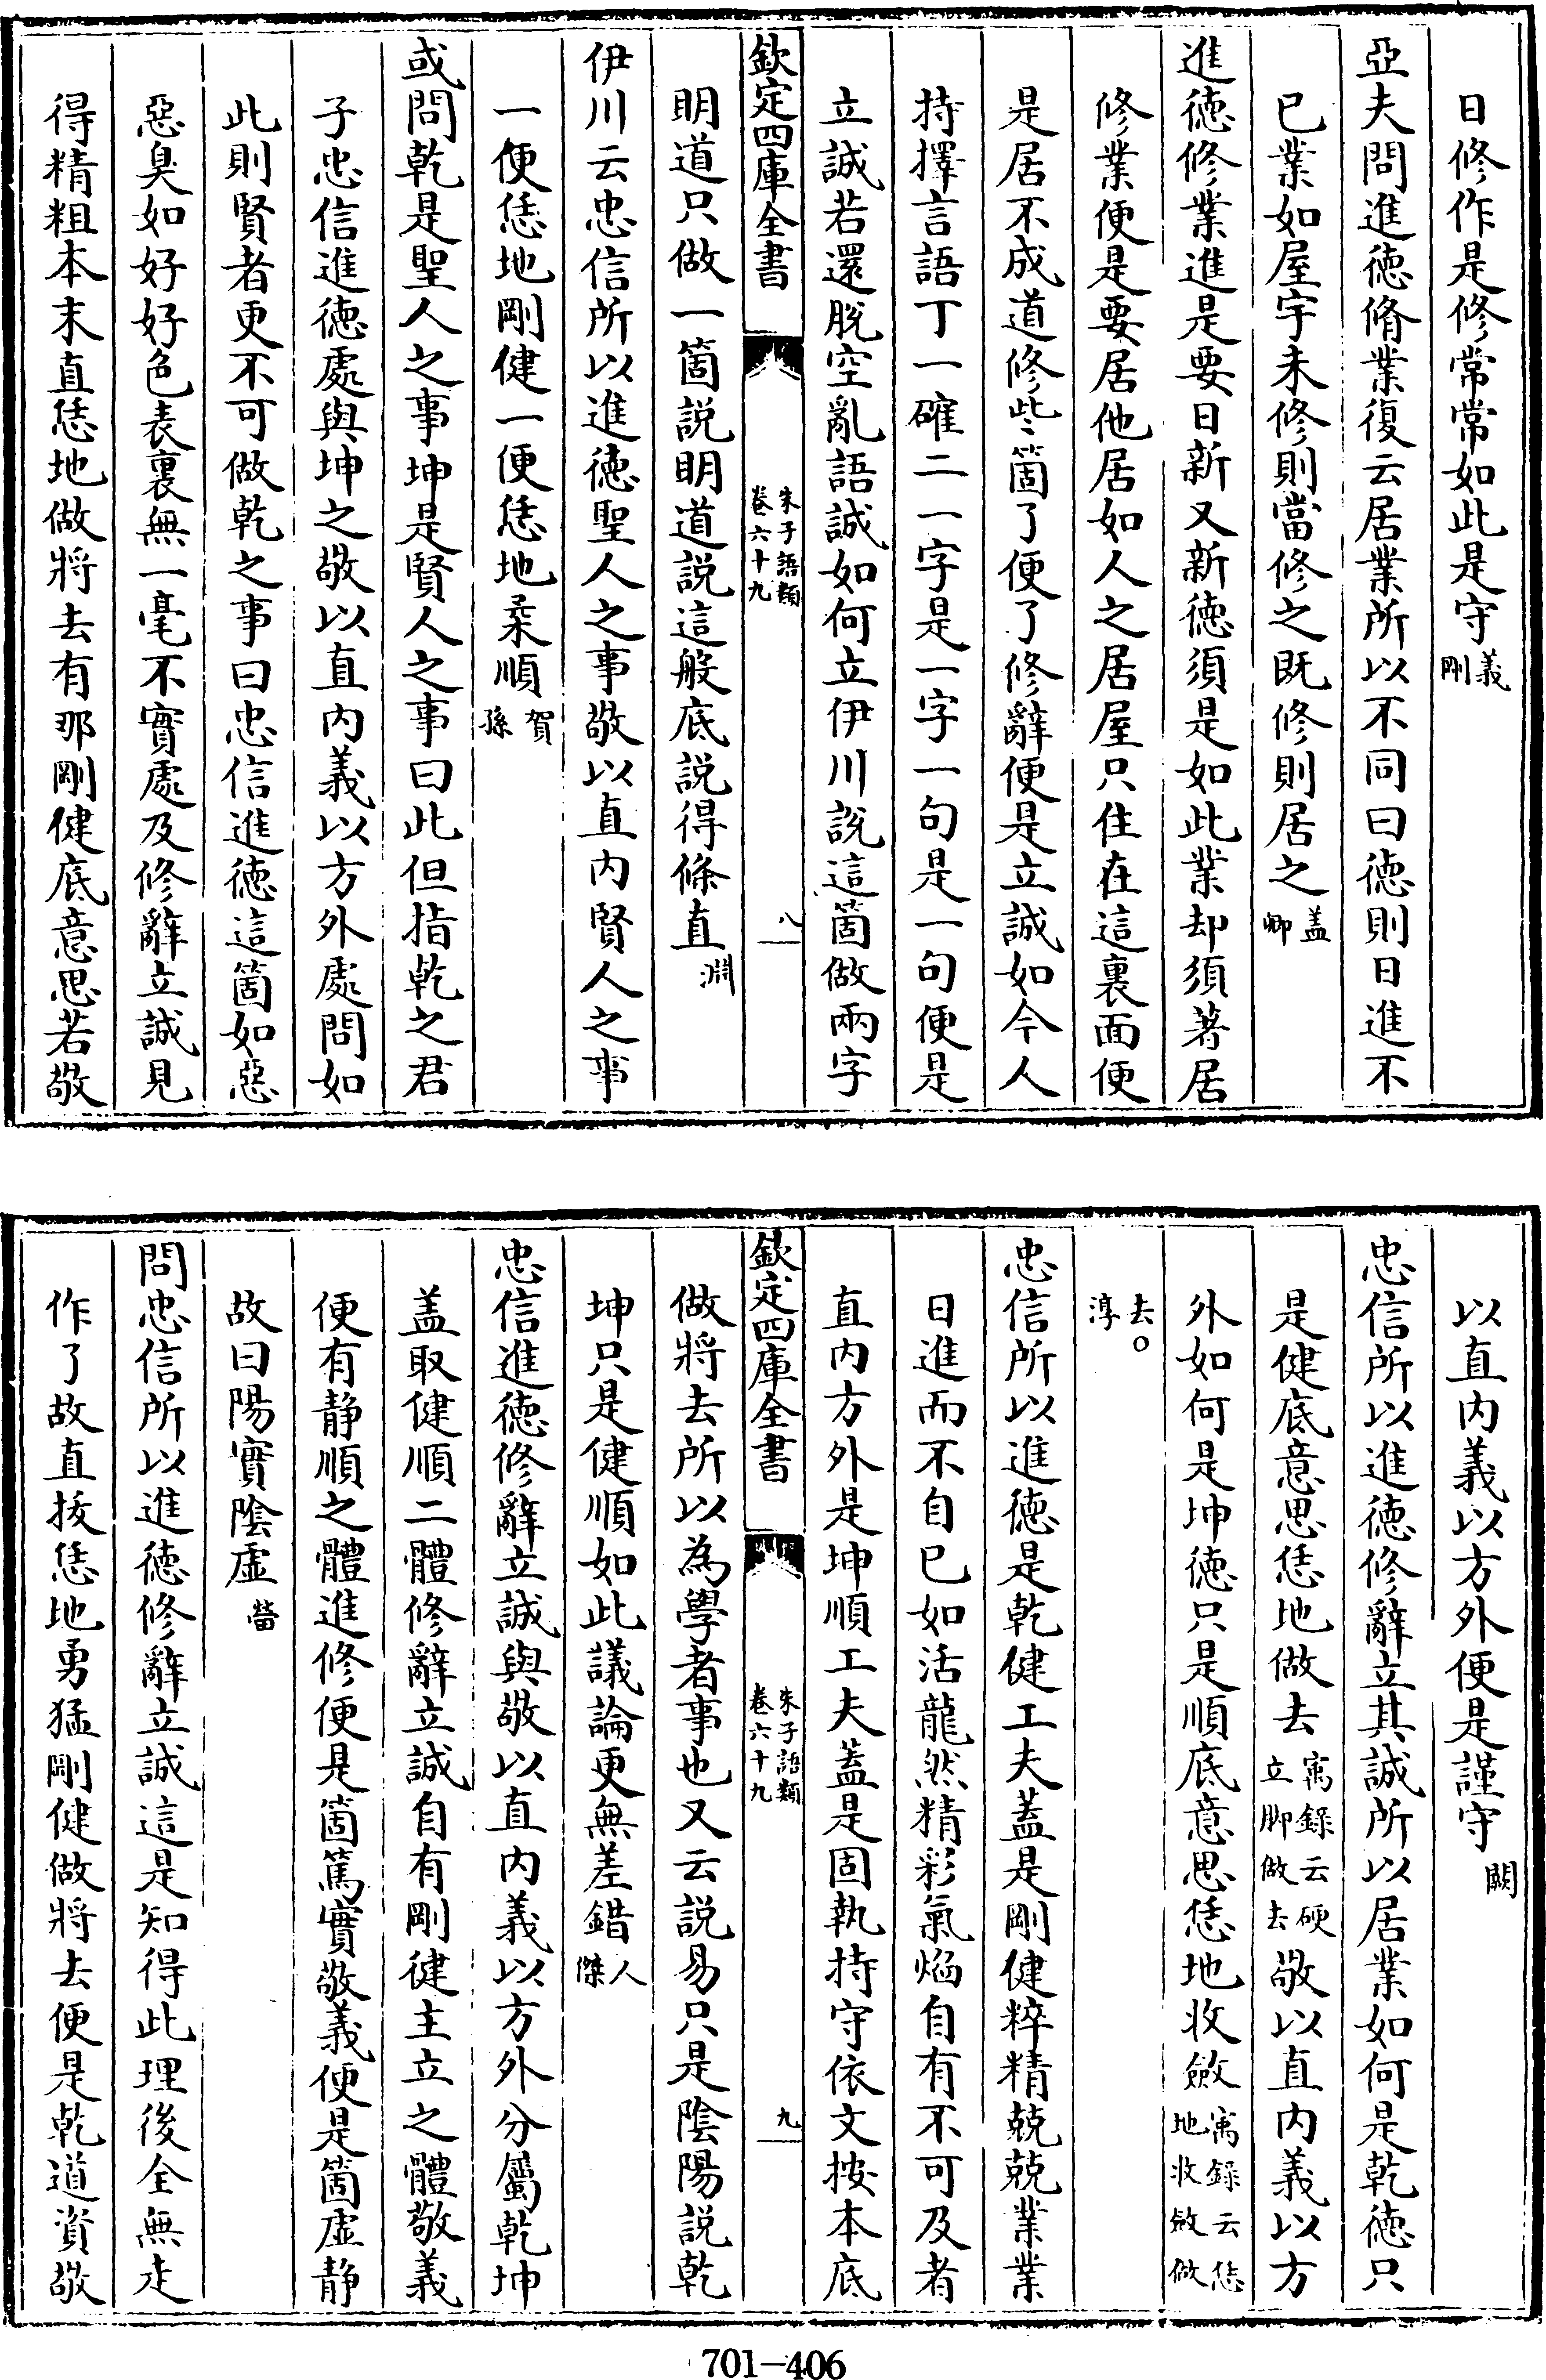 日修作是修常常如此是守義剛
亞夫問進德脩業復云居業所以不同曰德則日進不
已業如屋宇未修則當修之既修則居之盖卿
進德修業進是要日新又新德須是如此業却須著居
修業便是要居他居如人之居屋只住在這裏面便
是居不成道修些箇了便了修辭便是立誠如今人
持擇言語丁一確二一字是一字一句是一句便是
立誠若還脫空亂語誠如何立伊川説這箇做兩字
欽定四庫全書 朱子語類卷六十九 八
明道只做一箇説明道説這般底説得條直淵
伊川云忠信所以進德聖人之事敬以直内賢人之事
一便恁地剛健一便恁地柔順賀孫
或問乾是聖人之事坤是賢人之事曰此但指乾之君
子忠信進德處與坤之敬以直内義以方外處問如
此則賢者更不可做乾之事曰忠信進德這箇如惡
惡臭如好好色表裏無一毫不實處及修辭立誠見
得精粗本末直恁地做將去有那剛健底意思若敬
以直内義以方外便是謹守闕
忠信所以進德修辭立其誠所以居業如何是乾德只
是健底意思恁地做去寓錄云硬立脚做去敬以直内義以方
外如何是坤德只是順底意思恁地收斂寓錄云恁地收斂做
去○淳
忠信所以進德是乾健工夫蓋是剛健粹精兢兢業業
日進而不自已如活龍然精彩氣焰自有不可及者
直内方外是坤順工夫蓋是固執持守依文按本底
欽定四庫全書 朱子語類卷六十九 九
做將去所以為學者事也又云説易只是陰陽説乾
坤只是健順如此議論更無差錯人傑
忠信進德修辭立誠與敬以直内義以方外分屬乾坤
盖取健順二體修辭立誠自有剛健主立之體敬義
便有静順之體進修便是箇篤實敬義便是箇虛静
故曰陽實陰虛㽦
問忠信所以進德修辭立誠這是知得此理後全無走
作了故直拔恁地勇猛剛健做將去便是乾道資敬
701—406